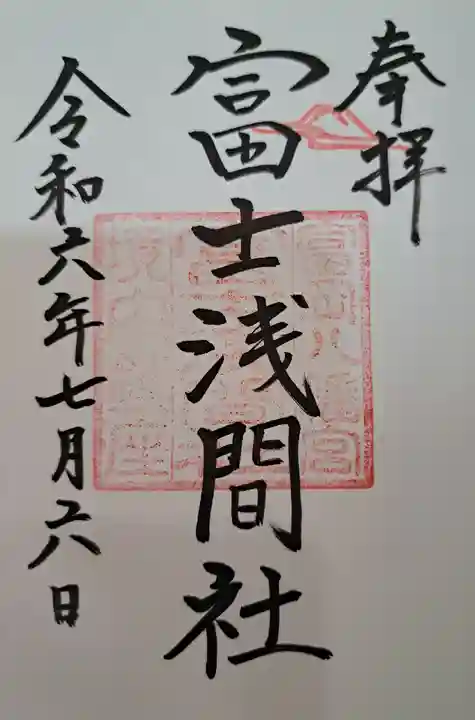 奉拝
富士浅間社
令和六年七月二八日